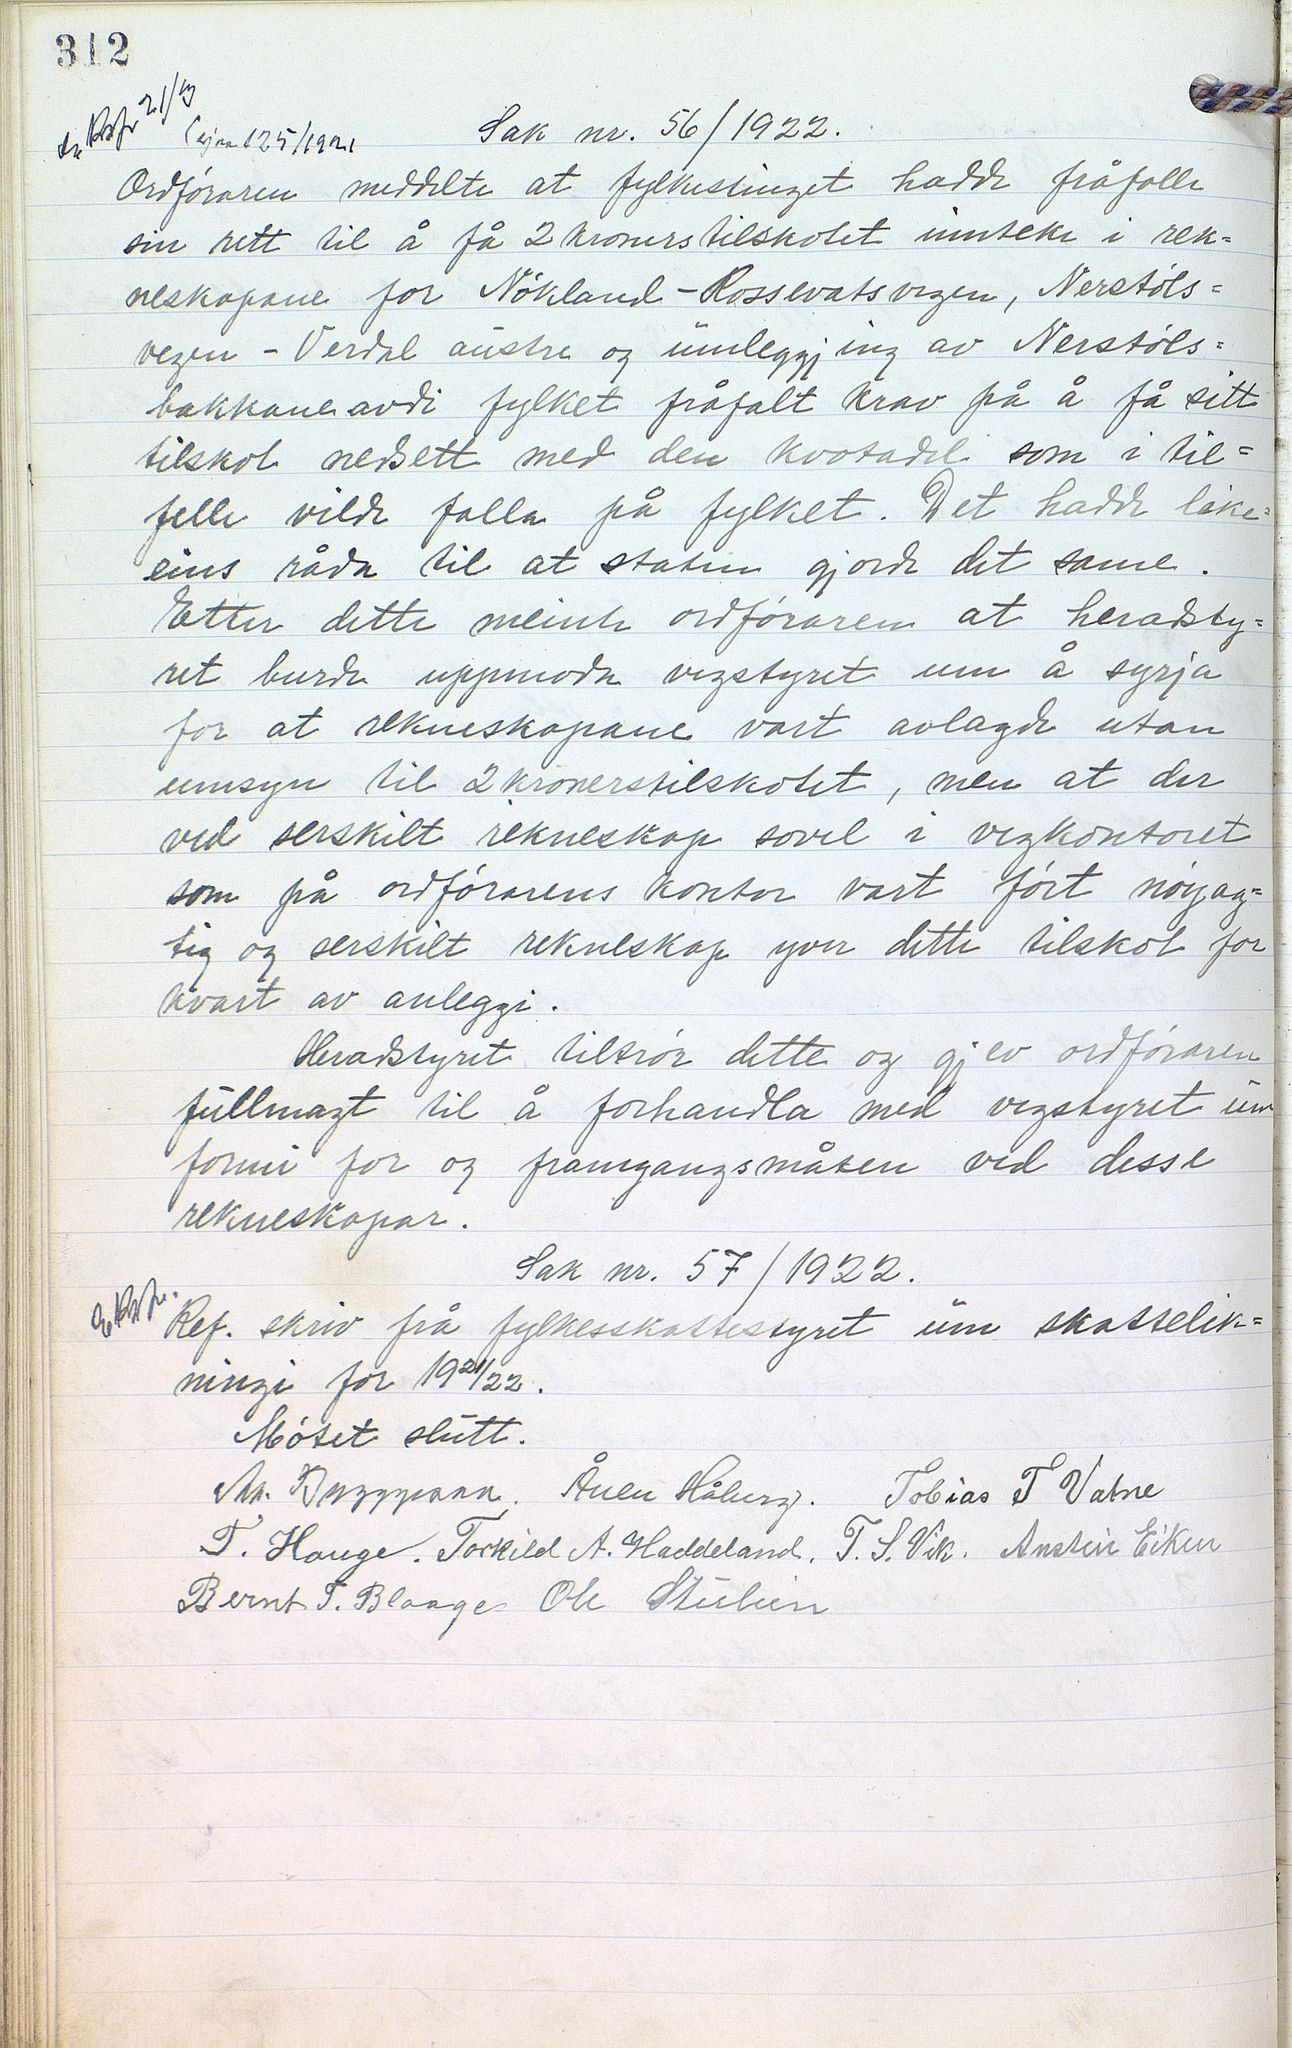 312
Sak nr. 56/1922.
125/1921
Ordføraren meddelte at fylkestinget hadde fråfalle
sin rett til å få 2 kronerstilskotet innteke i rek=
neskapane for Nökland-Rossevatsvegen, Nerstöls=
vegen - Verdal austre og umleggjing av Nerstöls=
bakkane avdi fylket fråfalt krav på å få sitt
tilskot nedsett med den kvotadel som i til=
felle vilde falla på fylket. Det hadde like=
eins råda til at staten gjorde det same.
Etter dette meinte ordføraren at heradsty=
ret burde uppmoda vegstyret um å syrja
for at rekneskapane vart avlagde utan
umsyn til 2 kronerstilskotet, men at der
ved serskilt rekneskap sovel i vegkontoret
som på ordførarens kontor vart ført nöijag=
tig og serskilt rekneskap yver dette tilskot for
kvart av anleggi.
Heradstyret tiltrör dette og gjev ordføraren
fullmagt til å forhandla med vegstyret um
formi for og framgangsmåten ved desse
rekneskapar.
Sak nr. 57/1922.
Ref. skriv frå fylkesskattestyret um skattelik=
ningi for 1921/22.
Møtet slutt.
Ånen Håberg. Tobias T Vatne
T. Hauge. Torkild A. Haddeland. T. S. Vik. Anstein Eiken
Bernt T. Blaage Ole Stulien